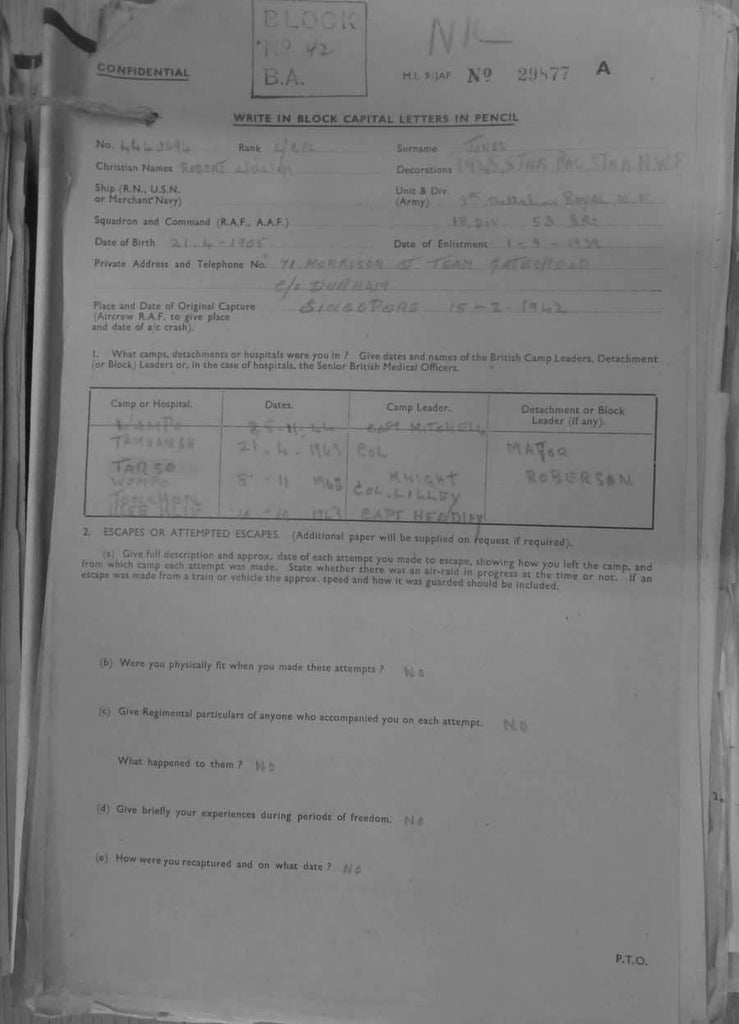 BLOCK
Nº 42
B.A.
NIL
CONFIDENTIAL
M.I. 9/JAP Nº 29877 A
WRITE IN BLOCK CAPITAL LETTERS IN PENCIL
No. Rank L/CPL Surname JONES
Christian Names ROBERT WILLIAM Decorations STAR PAC STAR
Ship (R.N., U.S.N. or Merchant Navy)
Unit & Div. (Army) 9th Battalion ROYAL N.F.
Squadron and Command (R.A.F., A.A.F.) 18 DIV. 53 BR:
Date of Birth 21.4-1905 Date of Enlistment 1-9-1939
Private Address and Telephone No. 71 MORRISON ST TEAM GATESHEAD
DURHAM
Place and Date of Original Capture SINGOPORE 15-2.1942
(Aircrew R.A.F. to give place
and date of a/c crash).
1. What camps, detachments or hospitals were you in ? Give dates and names of the British Camp Leaders, Detachment
(or Block) Leaders or, in the case of hospitals, the Senior British Medical Officers.
Camp or Hospital. Dates. Camp Leader. Detachment or Block Leader (if any).
CAPT MITCHELL
21.4.1943 COL MAJOR
TARSO KNIGHT ROBERSON
WOMPO 8-11 COL. LILLEY
TONCHAN
1943 CAPT
2. ESCAPES OR ATTEMPTED ESCAPES. (Additional paper will be supplied on request if required).
(a) Give full description and approx. date of each attempt you made to escape, showing how you left the camp, and
from which camp each attempt was made. State whether there was an air-raid in progress at the time or not. If an
escape was made from a train or vehicle the approx. speed and how it was guarded should be included.
(b) Were you physically fit when you made these attempts ? NO
(c) Give Regimental particulars of anyone who accompanied you on each attempt. NO
What happened to them ? NO
(d) Give briefly your experiences during periods of freedom. NO
(e) How were you recaptured and on what date ? NO
P.T.O.